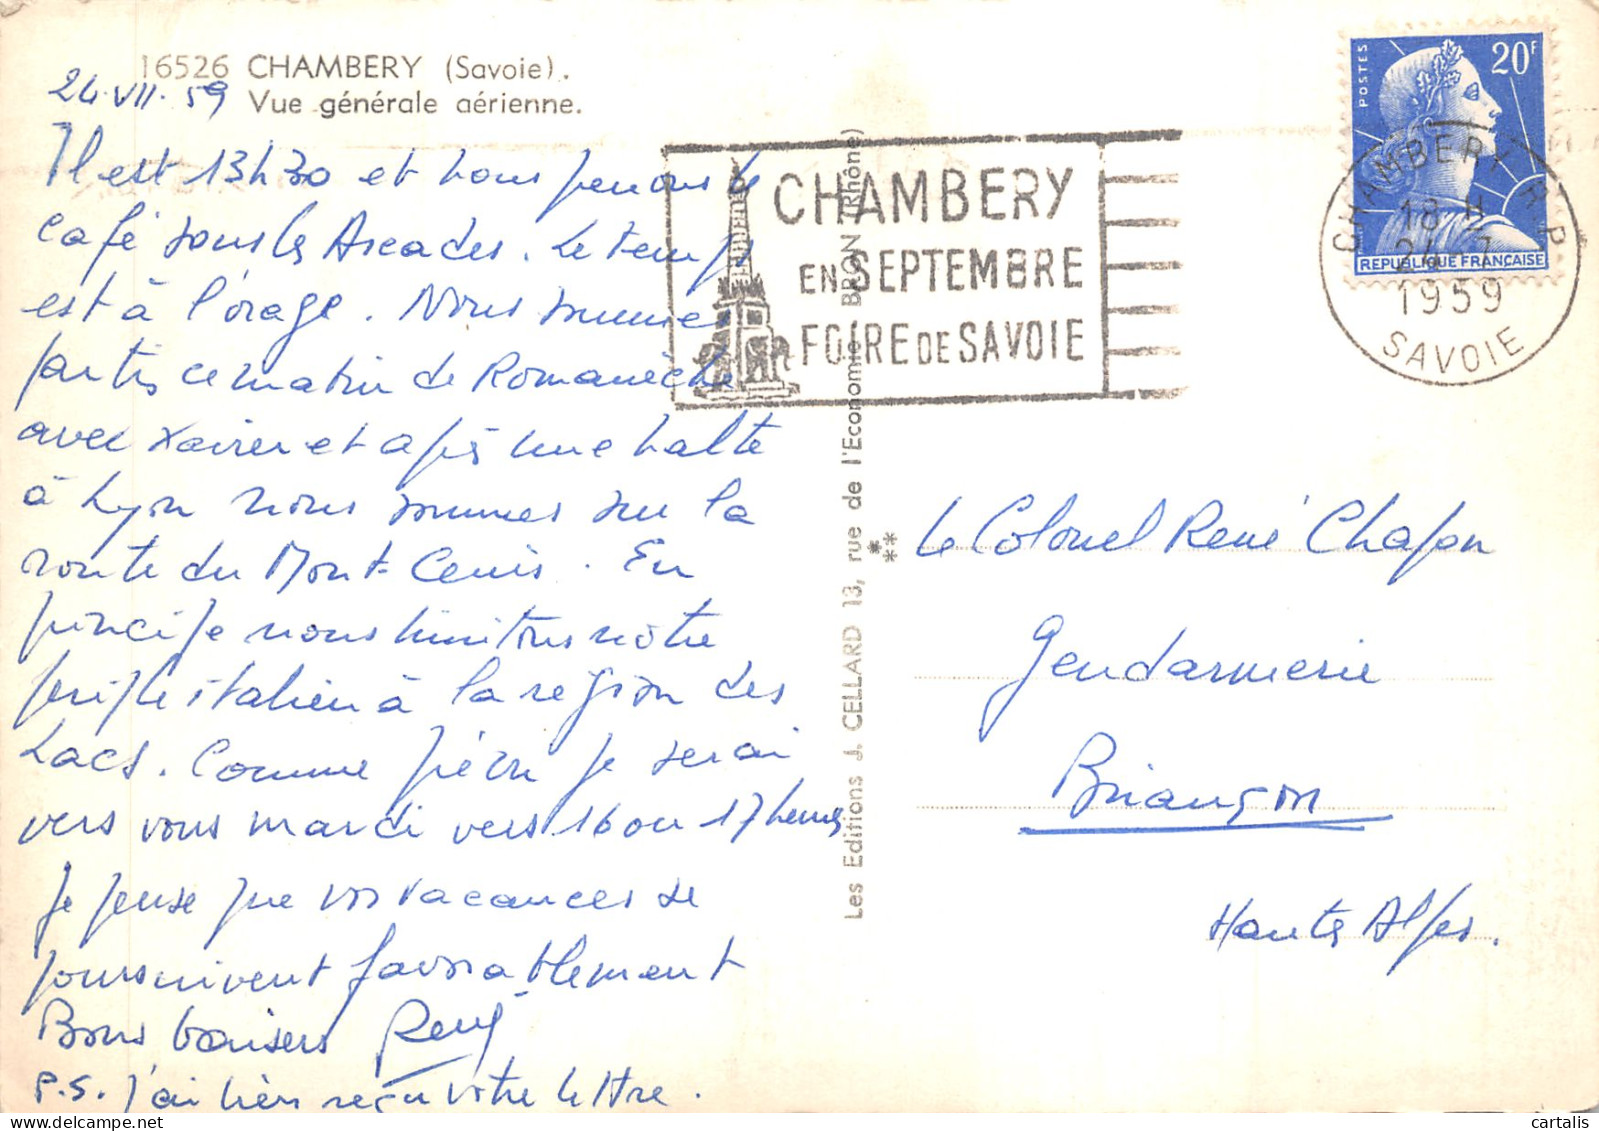 16526 CHAMBERY (Savoie).
Vue générale aérienne.
24.VII.59
Il est 13h30 et nous prenons le
café sous les Arcades. Le temps
est à l'orage. Nous sommes
partis ce matin de Romanèche
avec Xavier et après une halte
à Lyon nous sommes sur la
route du Mont-Cenis. En
principe nous limitons notre
périple italien à la région des
Lacs. Comme prévu je serai
vers vous mardi vers 16 ou 17 heures
Je pense que vos vacances se
poursuivent favorablement
Bons baisers René
P.S. J'ai bien reçu votre lettre.
Les Editions J. CELLARD 13, rue de l'Economie - BRON (Rhône)
CHAMBERY
EN SEPTEMBRE
FOIRE DE SAVOIE
POSTES
20F
REPUBLIQUE FRANÇAISE
CHAMBERY R.P
18 H
24 - 7
1959
SAVOIE
Le Colonel René Chapon
Gendarmerie
Briançon
Hautes Alpes.
cartalis